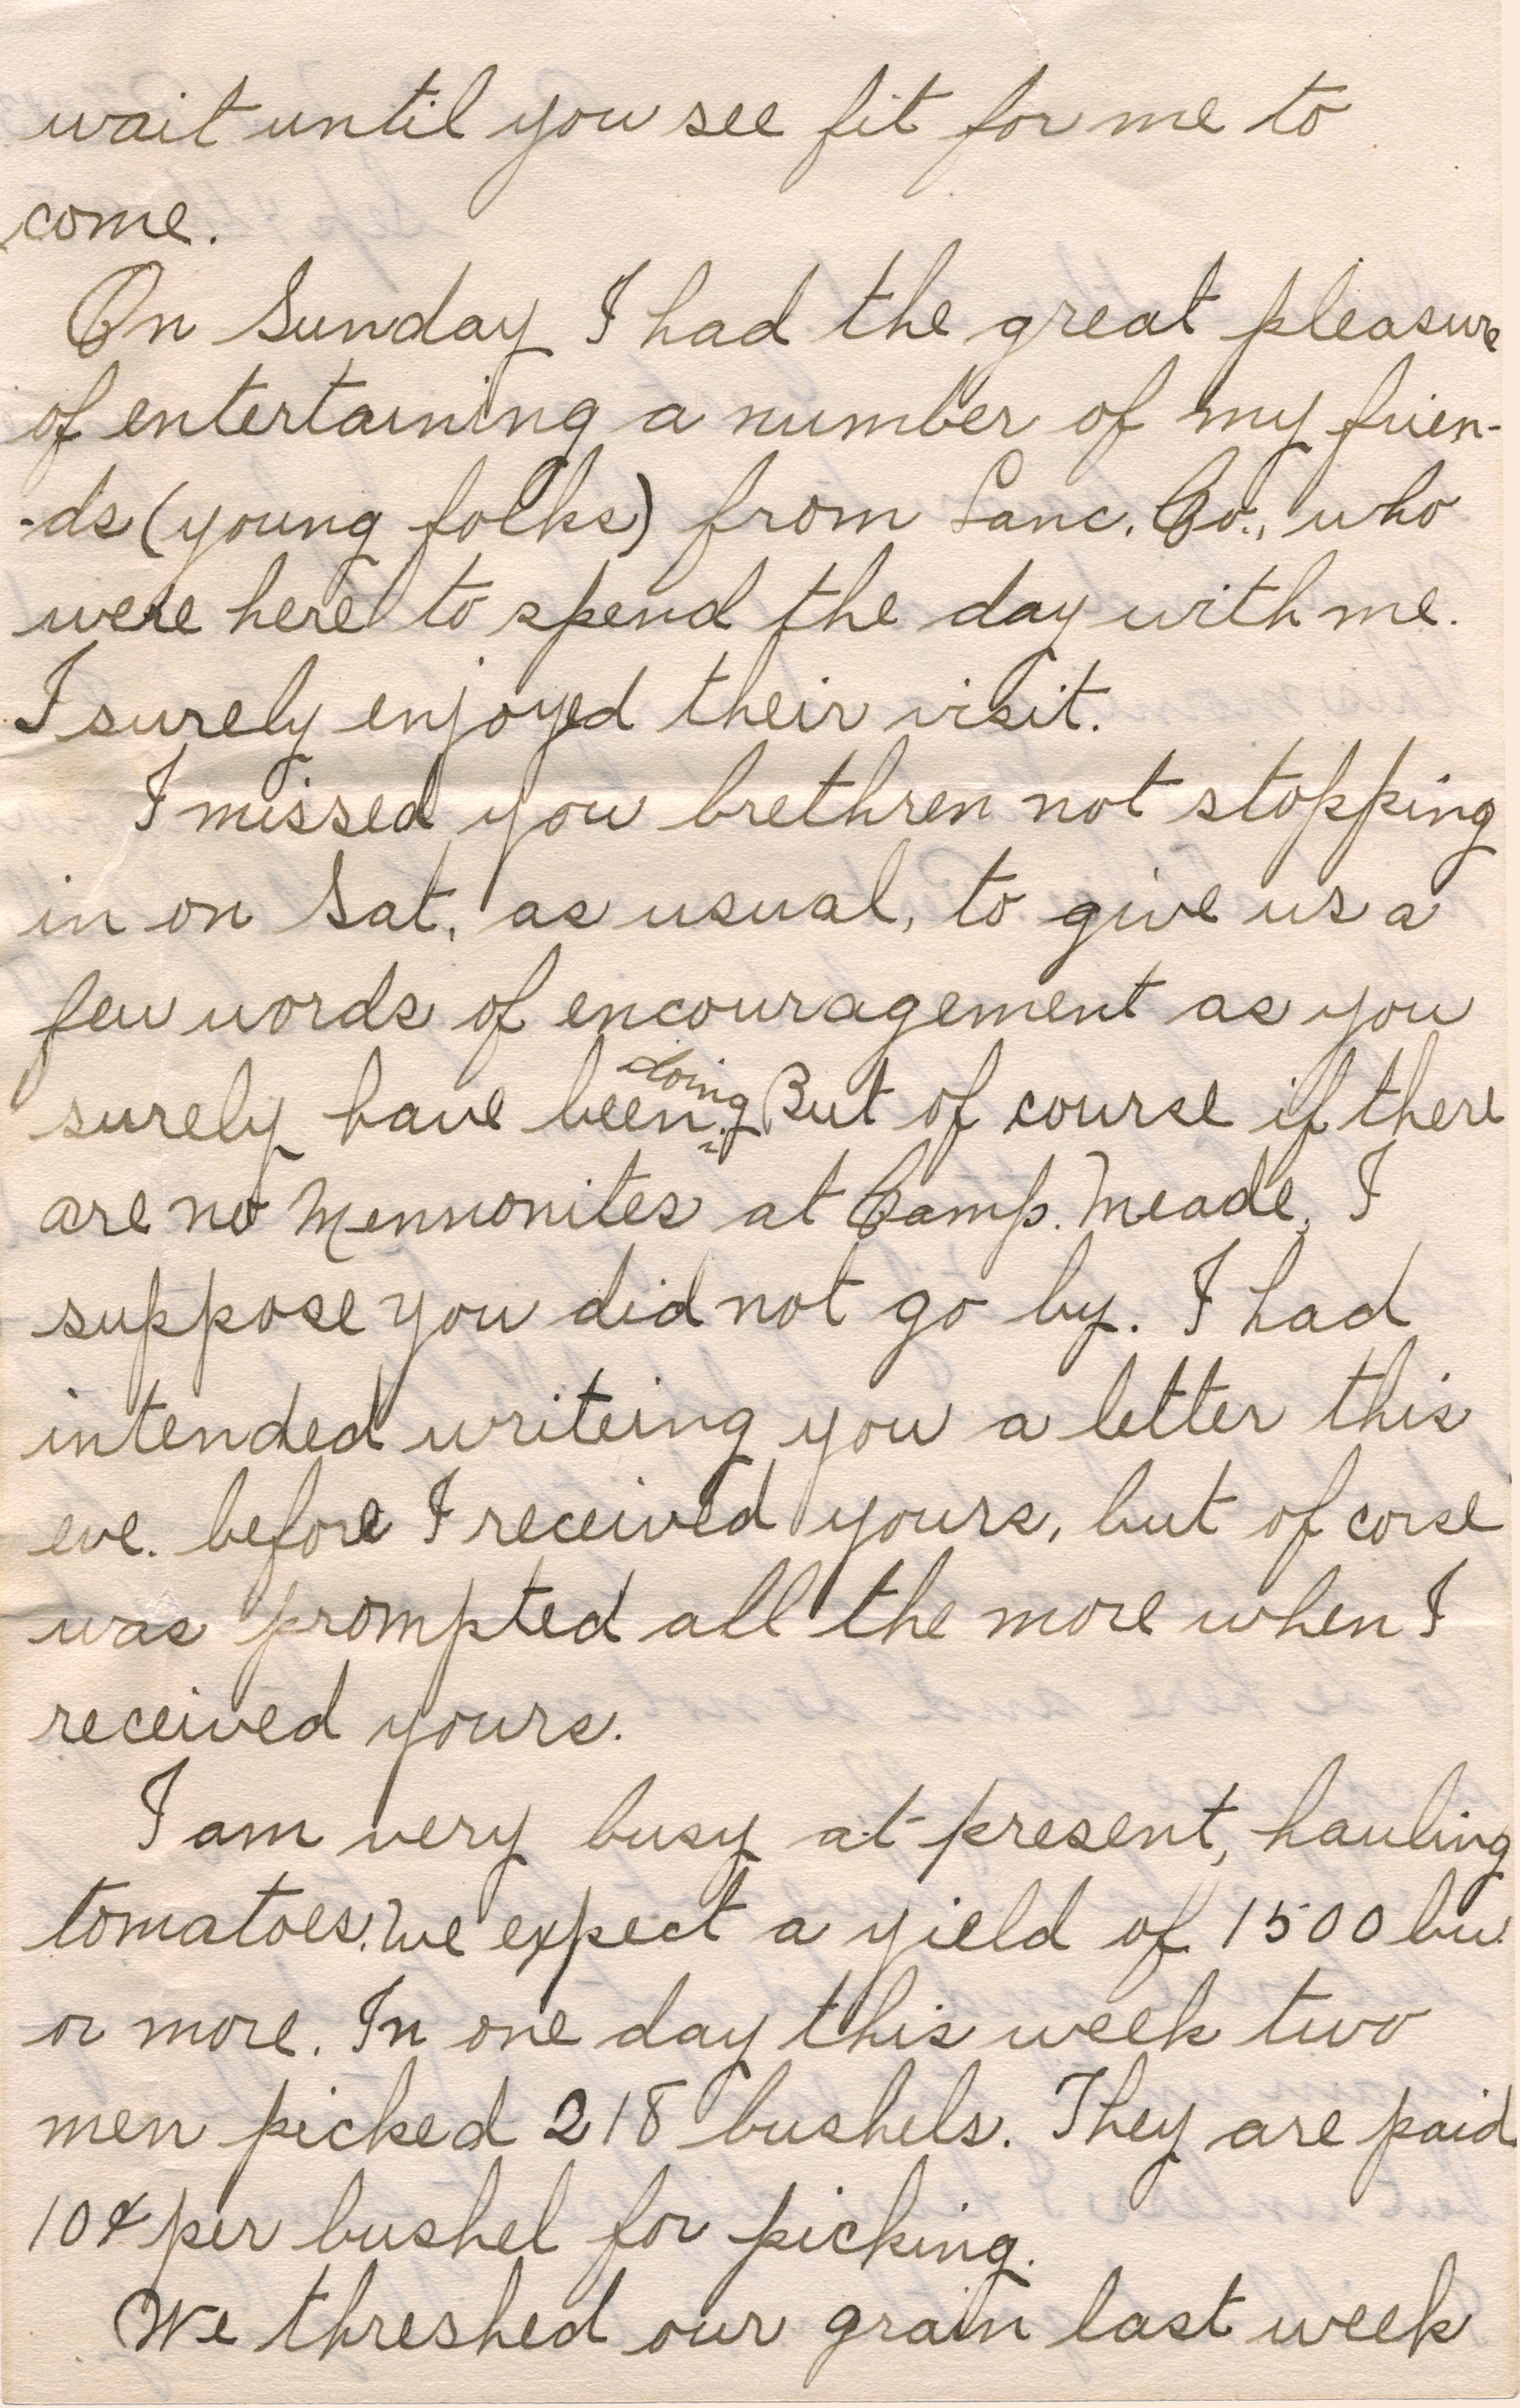 wait until you see fit for me to
come.
On Sunday I had the great pleasure
of entertaining a number of my frien-
-ds (young folks) from Lanc. Co., who
were here to spend the day with me.
I surely enjoyed their visit.
I missed you brethren not stopping
in on Sat. as usual, to give us a
few words of encouragement as you
surely have been doing. But of course if there
are no Mennonites at Camp. Meade, I
suppose you did not go by. I had
intended writeing you a letter this
eve. before I received yours, but of corse
was prompted all the more when I
received yours.
I am very busy at present, hauling
tomatoes. We expect a yield of 1500 bu.
or more. In one day this week two
men picked 218 bushels. They are paid
10¢ per bushel for picking.
We threshed our grain last week